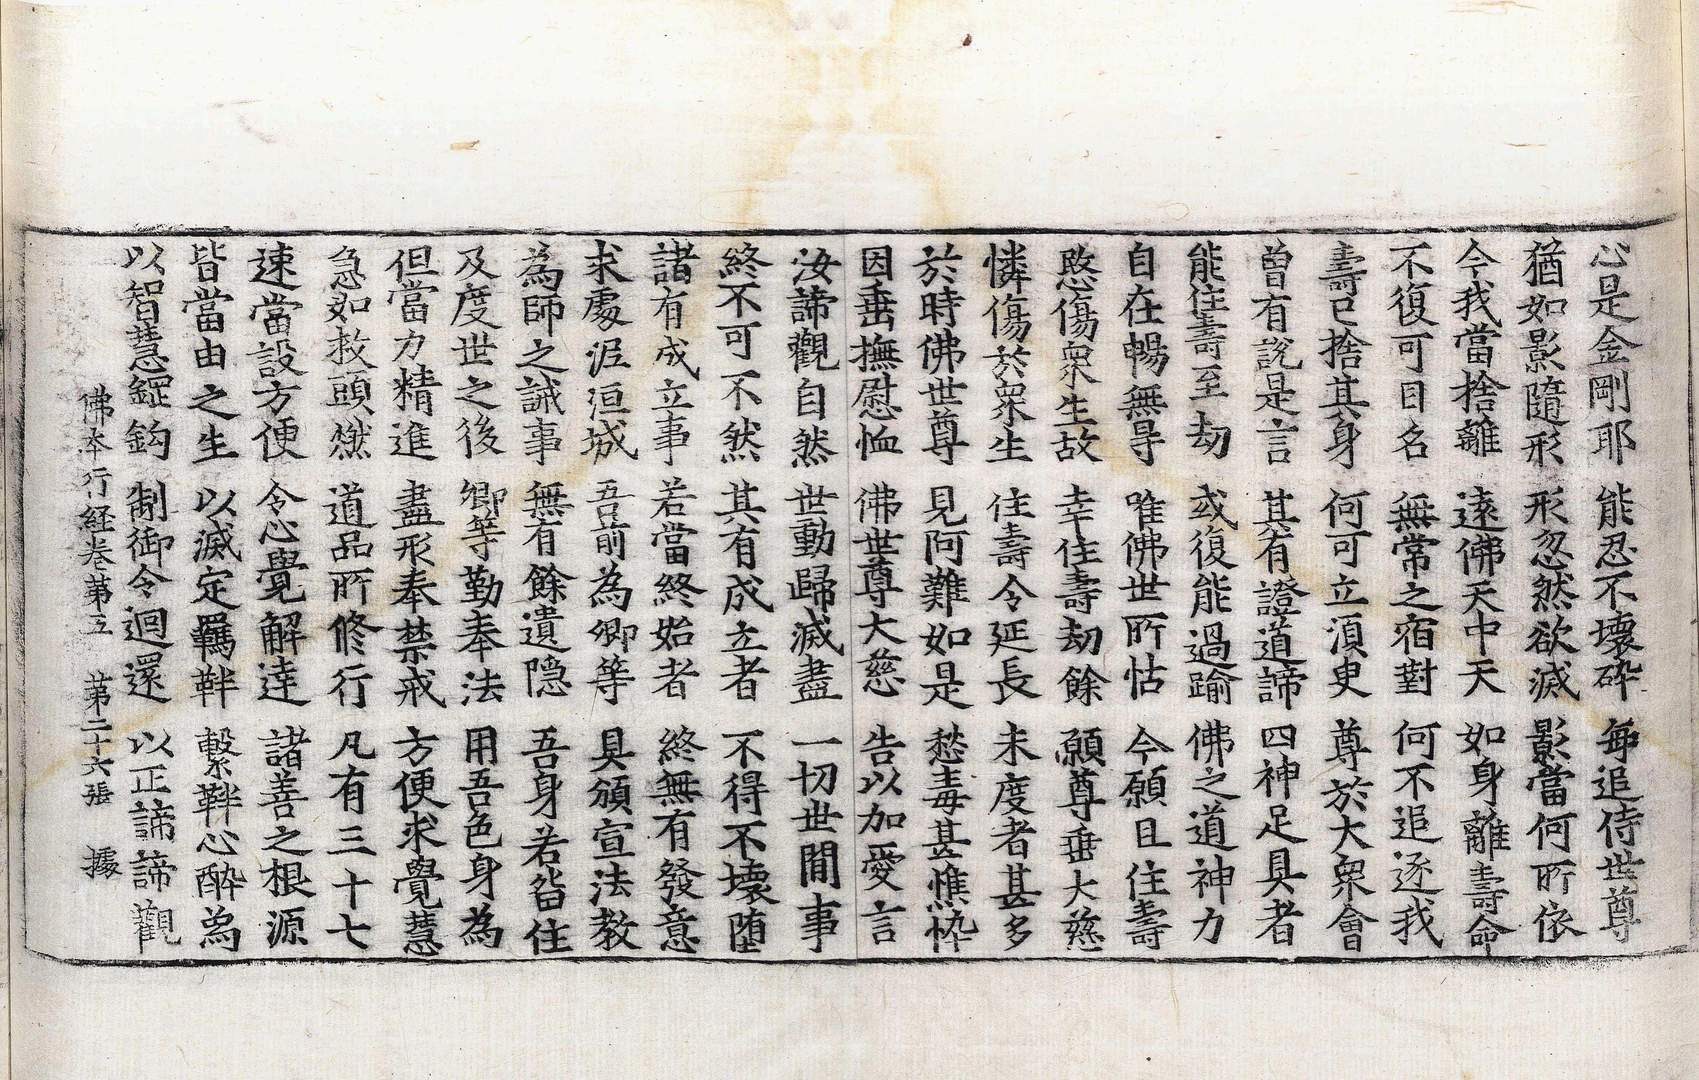 心是金剛耶 能忍不壞碎 每追侍世尊
猶如影隨形 形忽然欲滅 影當何所依
今我當捨離 遠佛天中天 如身離壽命
不復可目名 無常之宿對 何不追逐我
壽已捨其身 何可立湏臾 尊於大衆會
曾有說是言 其有證道諦 四神足具者
能住壽至劫 或復能過踰 佛之道神力
自在暢無㝵 唯佛世所怙 今願且住壽
愍傷衆生故 幸住壽劫餘 願尊垂大慈
憐傷於衆生 住壽令延長 未度者甚多
於時佛世尊 見阿難如是 愁毒甚憔悴
因垂撫慰恤 佛世尊大慈 告以加愛言
汝諦觀自然 世動歸滅盡 一切世間事
終不可不然 其有成立者 不得不壞墮
諸有成立事 若當終始者 終無有發意
求處泥洹城 吾前為卿等 具頒宣法教
為師之誡事 無有餘遺隠 吾身若留住
及度世之後 卿等勤奉法 用吾色身為
但當力精進 盡形奉禁戒 方便求覺慧
急如救頭燃 道品所修行 凡有三十七
速當設方便 令心覺解達 諸善之根源
皆當由之生 以滅定羈靽 繫靽心醉為
以智慧鋌鈎 制御令迴還 以正諦諦觀
佛本行経卷第五 第二十六張 據